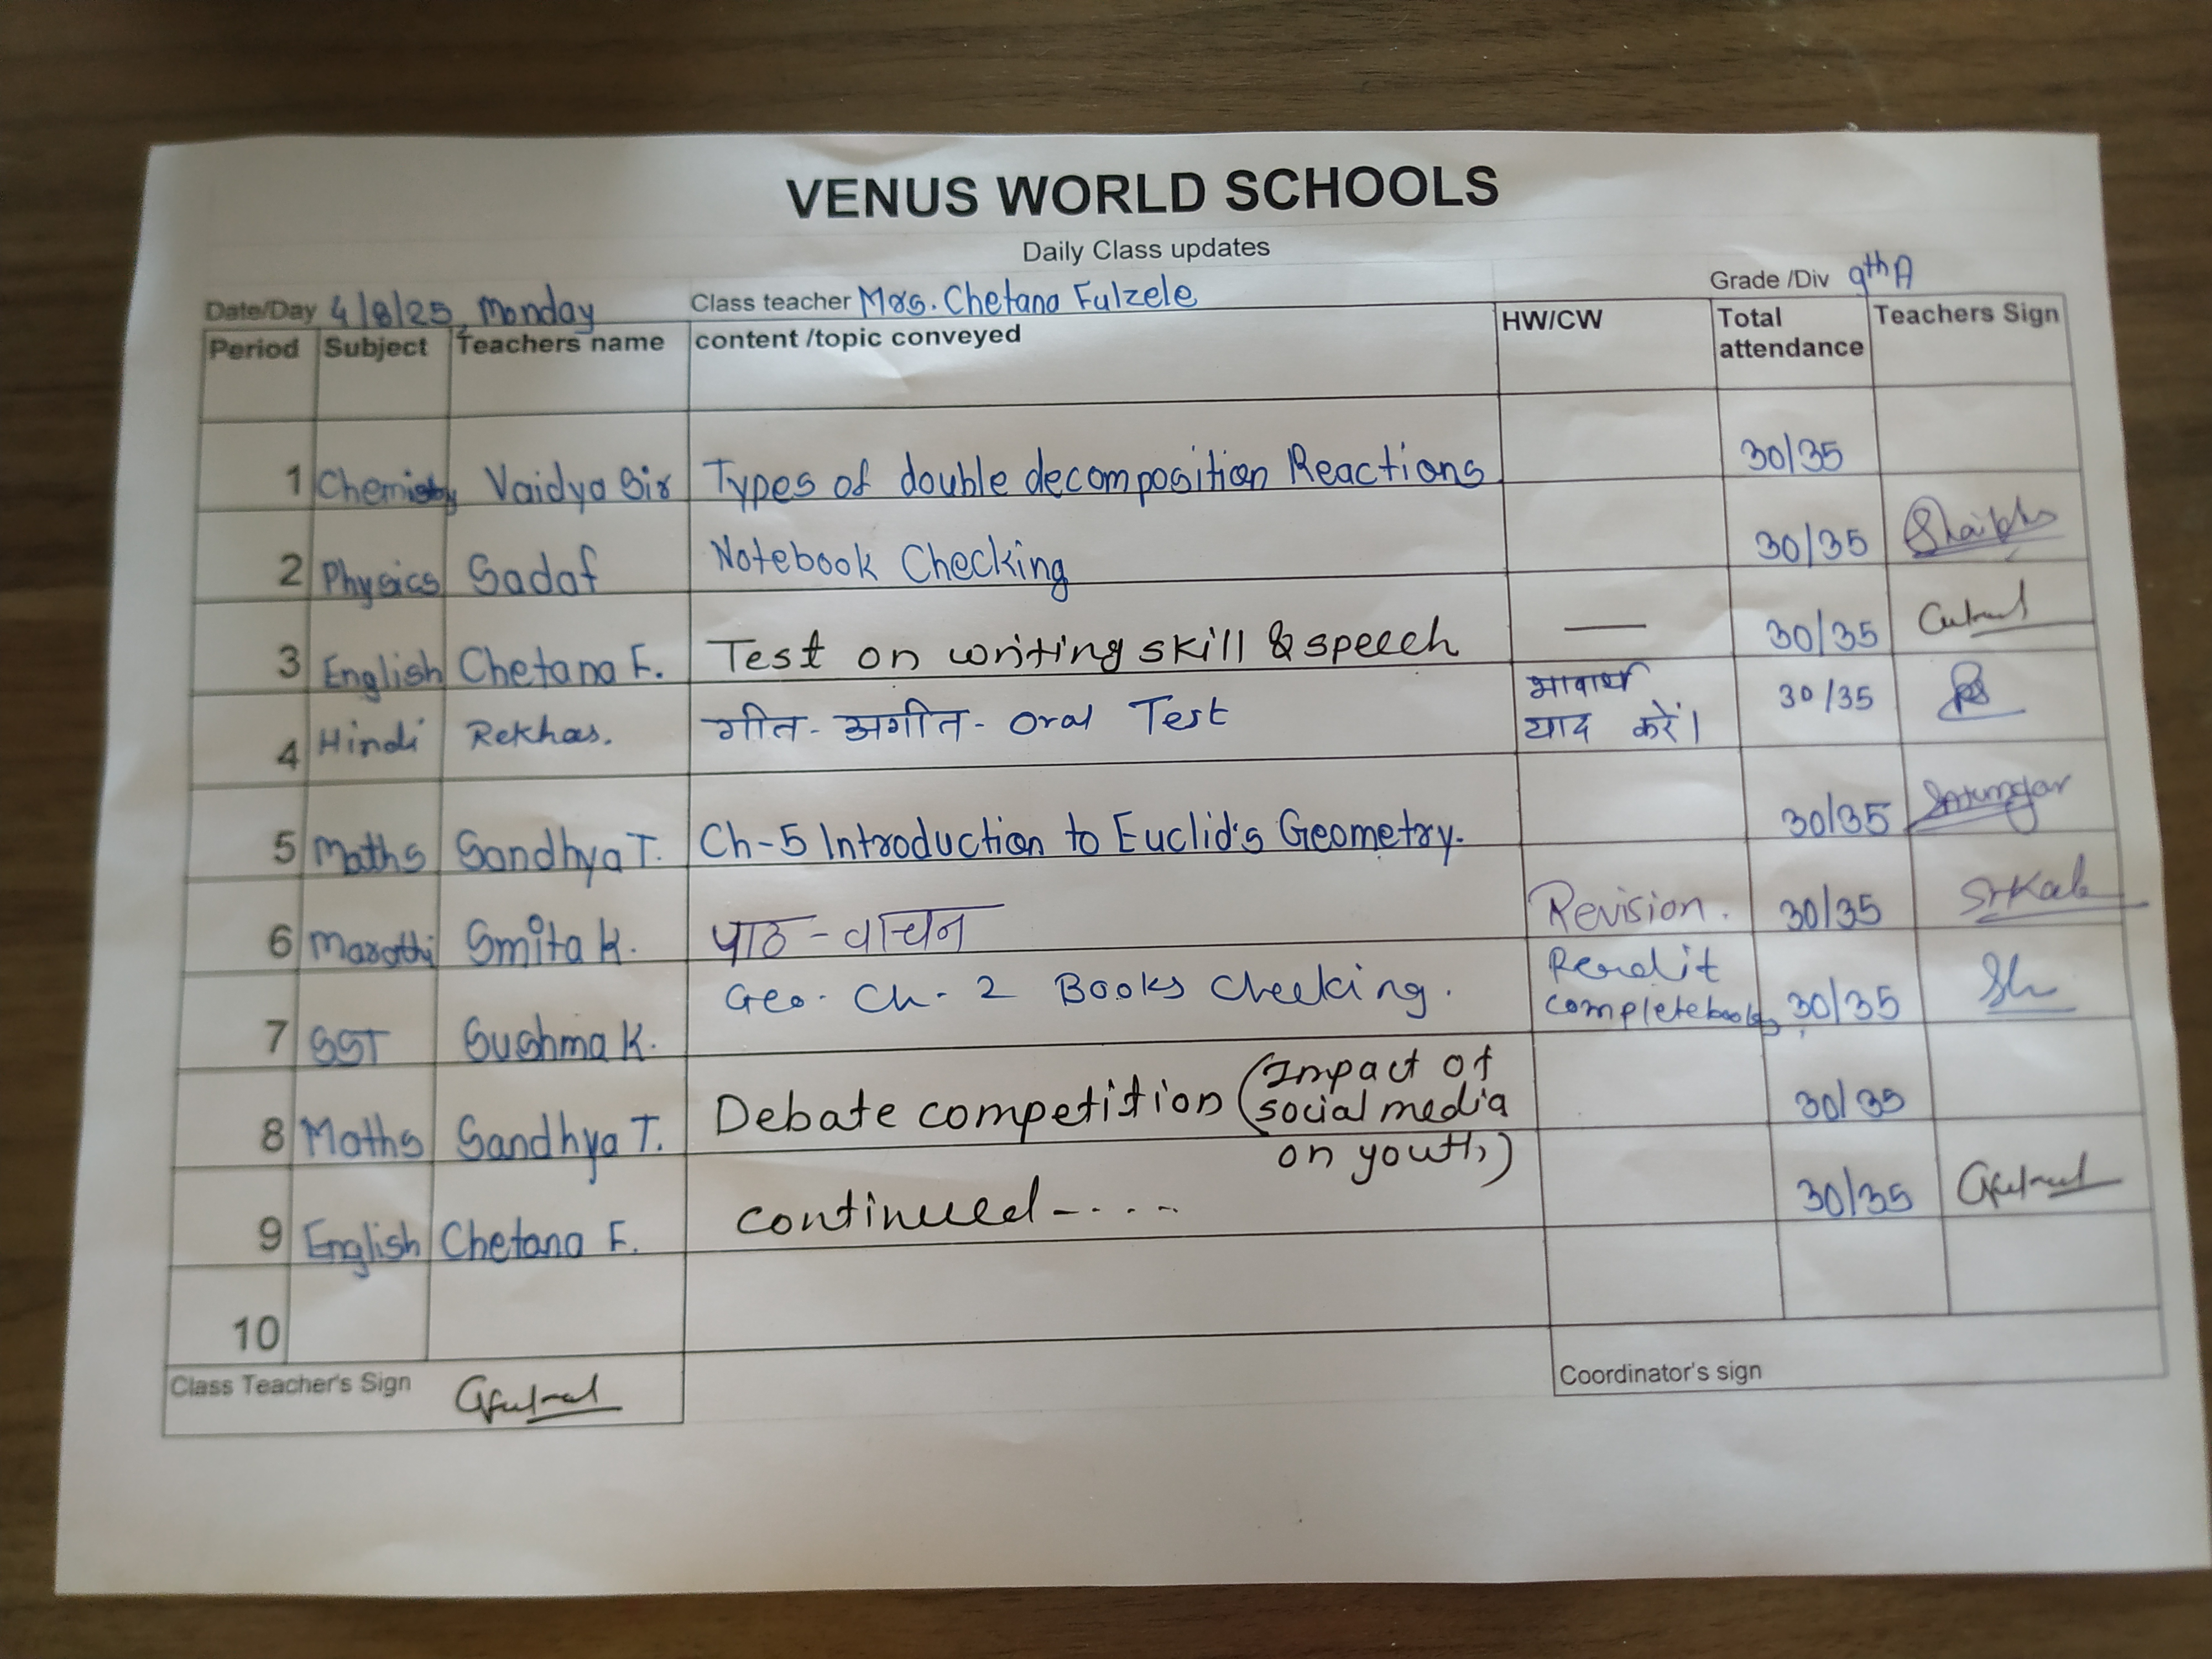 VENUS WORLD SCHOOLS
Daily Class updates
Date/Day 4/8/25, Monday Class teacher Mrs. Chetana Fulzele Grade /Div 9th A
Period Subject Teachers name content /topic conveyed HW/CW Total attendance Teachers Sign
1 Chemistry Vaidya Sir Types of double decomposition Reactions 30/35
2 Physics Sadaf Notebook Checking 30/35 Shaikhs
3 English Chetana F. Test on writing skill & speech — 30/35
4 Hindi Rekhas. गीत - अगीत - oral Test भावार्थ याद करें। 30/35
5 Maths Sandhya T. Ch-5 Introduction to Euclid's Geometry. 30/35
6 Marathi Smita K. पाठ - वाचन Revision. 30/35
7 SST Sushma K. Geo. Ch. 2 Books Checking. Read it complete books 30/35
8 Maths Sandhya T. Debate competition (Impact of social media on youth) 30/35
9 English Chetana F. continued - . . . . 30/35
10
Class Teacher's Sign Coordinator's sign